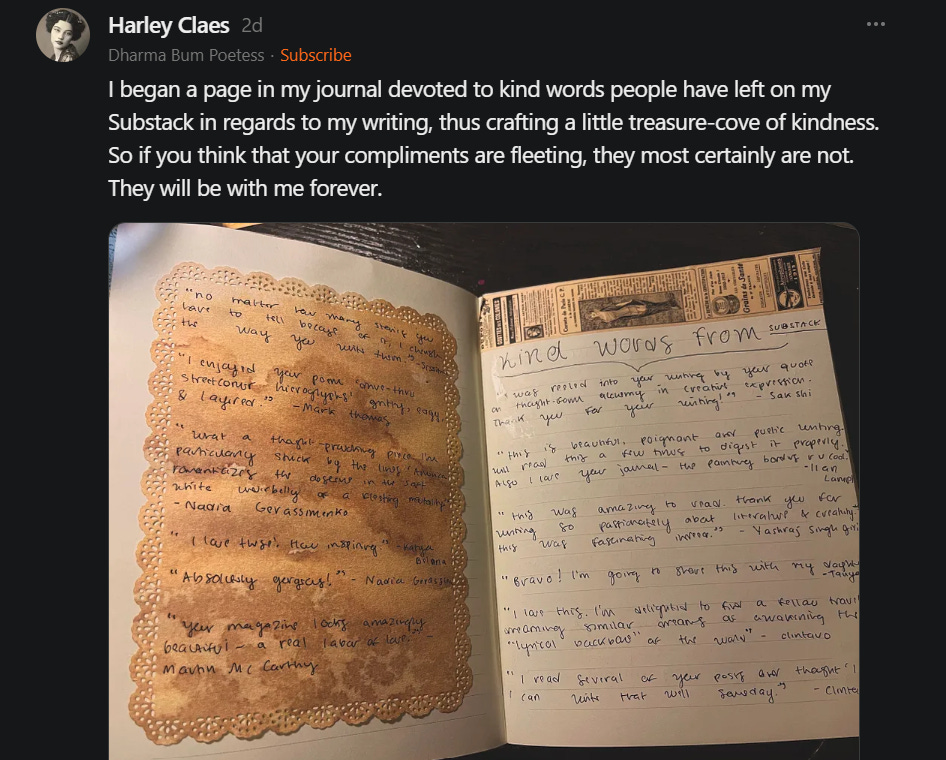 Harley Claes 2d
Dharma Bum Poetess · Subscribe
I began a page in my journal devoted to kind words people have left on my
Substack in regards to my writing, thus crafting a little treasure-cove of kindness.
So if you think that your compliments are fleeting, they most certainly are not.
They will be with me forever.
"no matter how many stories you
have to tell because of it, I cherish
the way you write them."
"I enjoyed your poem
streetcorner hieroglyphs' gritty, edgy,
& layered" - Mark Thomas
"what a thought-provoking piece I'm
particularly struck by the lines
romanticizes the in the soft
white underbelly of a
- Nadia Gerassimenko
"I love this! How inspiring" - Katya
"Absolutely gorgeous!" - Nadia
"Your magazine looks amazingly
beautiful - a real labor of love."
Martin Mc Carthy
kind words from SUBSTACK
I was reeled into your writing by your quote
on thought-form alchemy in creative expression.
Thank you for your writing!" - Sakshi
"this is beautiful, poignant and poetic writing
will read this a few times to digest it properly.
Also I love your journal - the painting borders r v cool.
"this was amazing to read. thank you for
writing so passionately about literature & creativity
this was fascinating indeed." - Yashraj Singh
"Bravo! I'm going to share this with my
"I love this. I'm delighted to find a fellow
dreaming similar dreams of awakening the
"lyrical backbone" of the world" - clintavo
"I read several of your posts and thought 'I
can write that well someday."